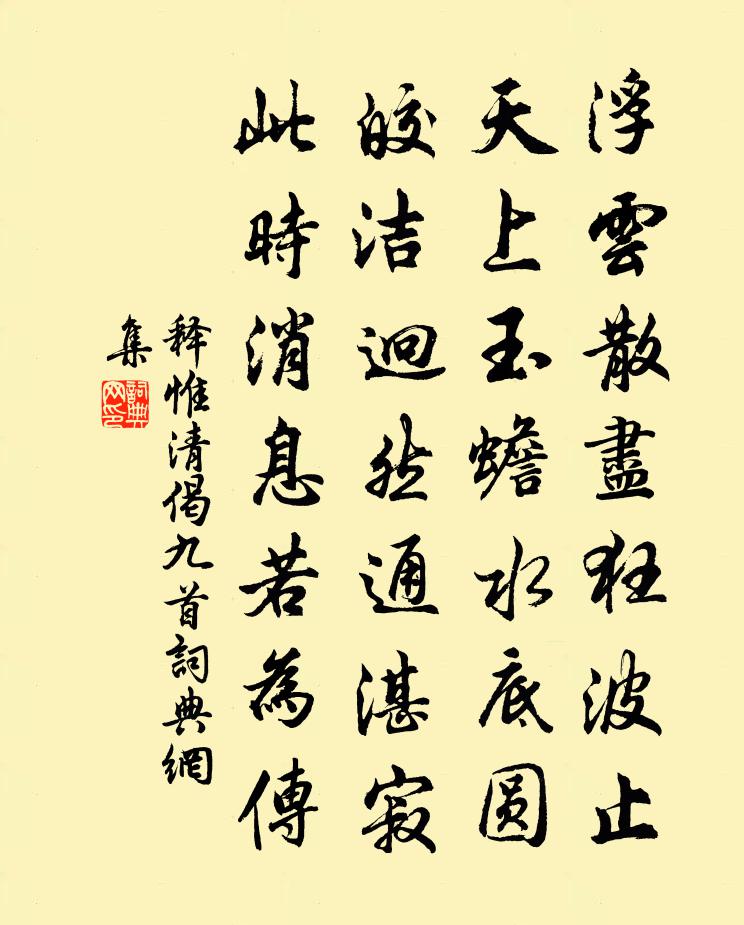 浮雲散盡狂波止
天上玉蟾水底圆
皎洁迥然通湛寂
此時消息若為傳
释惟清偈九首詞典網
集
詞典網印